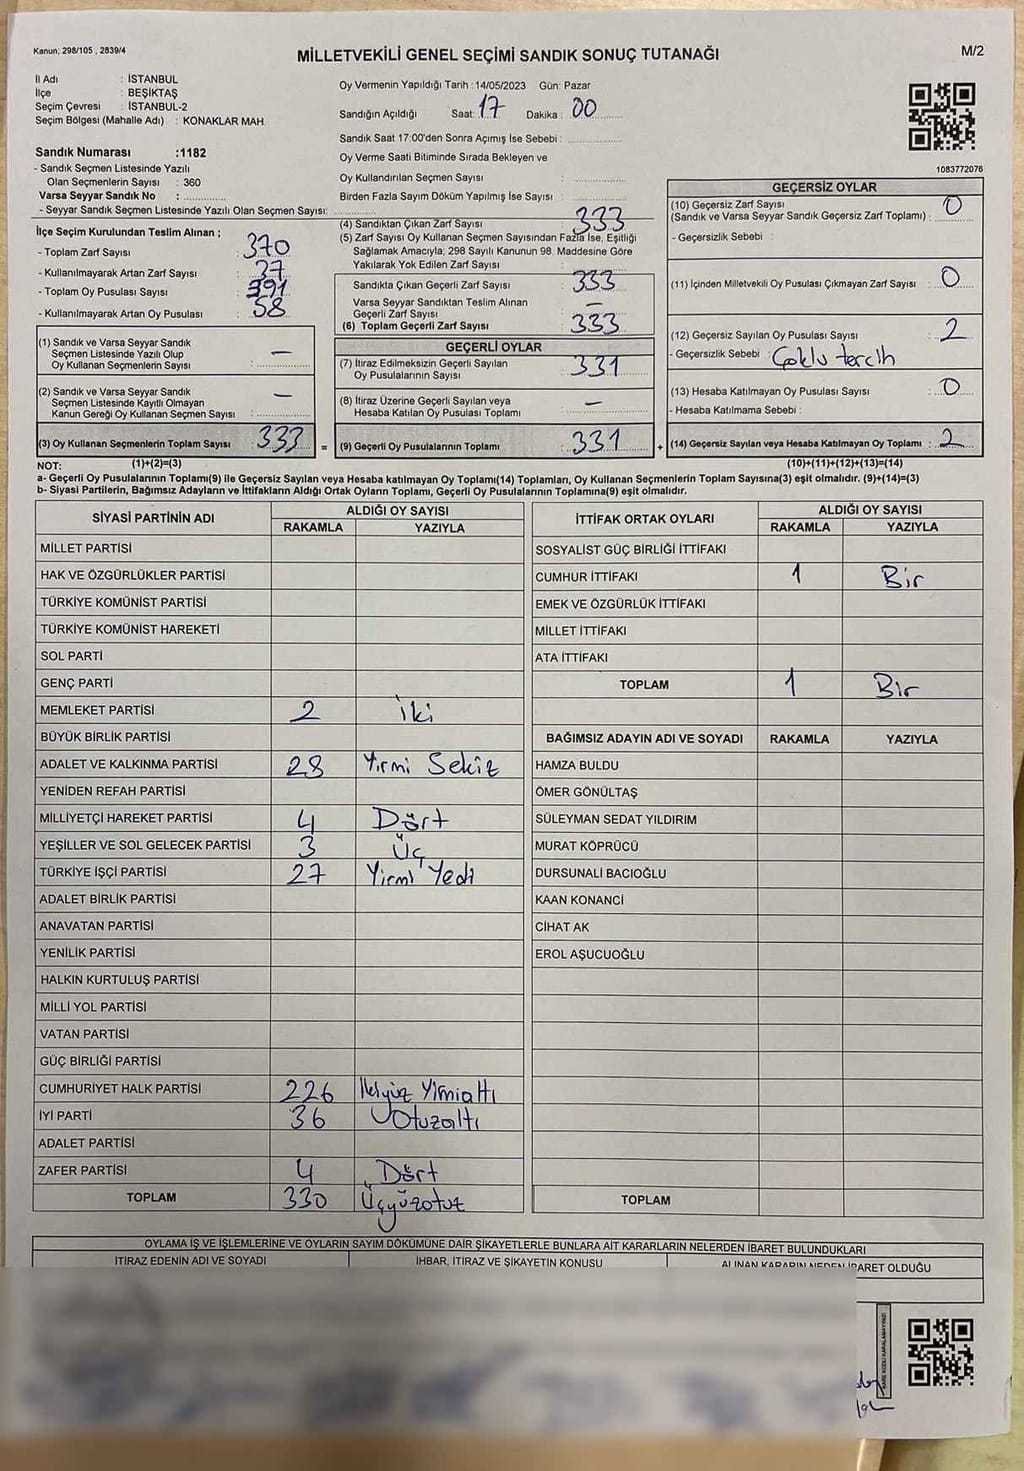 Kanun; 298/105 , 2839/4
MİLLETVEKİLİ GENEL SEÇİMİ SANDIK SONUÇ TUTANAĞI
M/2
İl Adı : İSTANBUL
İlçe : BEŞİKTAŞ
Seçim Çevresi : İSTANBUL-2
Seçim Bölgesi (Mahalle Adı) : KONAKLAR MAH.
Sandık Numarası :1182
- Sandık Seçmen Listesinde Yazılı
Olan Seçmenlerin Sayısı : 360
Varsa Seyyar Sandık No :
- Seyyar Sandık Seçmen Listesinde Yazılı Olan Seçmen Sayısı:
Oy Vermenin Yapıldığı Tarih : 14/05/2023 Gün: Pazar
Sandığın Açıldığı Saat: 17 Dakika : 00
Sandık Saat 17:00'den Sonra Açımış İse Sebebi :
Oy Verme Saati Bitiminde Sırada Bekleyen ve
Oy Kullandırılan Seçmen Sayısı :
Birden Fazla Sayım Döküm Yapılmış İse Sayısı :
1083772076
İlçe Seçim Kurulundan Teslim Alınan ;
- Toplam Zarf Sayısı : 370
- Kullanılmayarak Artan Zarf Sayısı : 37
- Toplam Oy Pusulası Sayısı : 391
- Kullanılmayarak Artan Oy Pusulası : 58
(1) Sandık ve Varsa Seyyar Sandık
Seçmen Listesinde Yazılı Olup
Oy Kullanan Seçmenlerin Sayısı : —
(2) Sandık ve Varsa Seyyar Sandık
Seçmen Listesinde Kayıtlı Olmayan
Kanun Gereği Oy Kullanan Seçmen Sayısı : —
(3) Oy Kullanan Seçmenlerin Toplam Sayısı : 333 =
(4) Sandıktan Çıkan Zarf Sayısı : 333
(5) Zarf Sayısı Oy Kullanan Seçmen Sayısından Fazla İse, Eşitliği
Sağlamak Amacıyla; 298 Sayılı Kanunun 98. Maddesine Göre
Yakılarak Yok Edilen Zarf Sayısı :
Sandıkta Çıkan Geçerli Zarf Sayısı : 333
Varsa Seyyar Sandıktan Teslim Alınan
Geçerli Zarf Sayısı : —
(6) Toplam Geçerli Zarf Sayısı : 333
GEÇERLİ OYLAR
(7) İtiraz Edilmeksizin Geçerli Sayılan
Oy Pusulalarının Sayısı : 331
(8) İtiraz Üzerine Geçerli Sayılan veya
Hesaba Katılan Oy Pusulası Toplamı : —
(9) Geçerli Oy Pusulalarının Toplamı : 331 +
GEÇERSİZ OYLAR
(10) Geçersiz Zarf Sayısı
(Sandık ve Varsa Seyyar Sandık Geçersiz Zarf Toplamı) : 0
- Geçersizlik Sebebi :
(11) İçinden Milletvekili Oy Pusulası Çıkmayan Zarf Sayısı : 0
(12) Geçersiz Sayılan Oy Pusulası Sayısı : 2
- Geçersizlik Sebebi : Çoklu tercih
(13) Hesaba Katılmayan Oy Pusulası Sayısı : 0
- Hesaba Katılmama Sebebi :
(14) Geçersiz Sayılan veya Hesaba Katılmayan Oy Toplamı : 2
NOT: (1)+(2)=(3) (10)+(11)+(12)+(13)=(14)
a- Geçerli Oy Pusulalarının Toplamı(9) ile Geçersiz Sayılan veya Hesaba katılmayan Oy Toplamı(14) Toplamları, Oy Kullanan Seçmenlerin Toplam Sayısına(3) eşit olmalıdır. (9)+(14)=(3)
b- Siyasi Partilerin, Bağımsız Adayların ve İttifakların Aldığı Ortak Oyların Toplamı, Geçerli Oy Pusulalarının Toplamına(9) eşit olmalıdır.
SİYASİ PARTİNİN ADI ALDIĞI OY SAYISI
RAKAMLA YAZIYLA
MİLLET PARTİSİ
HAK VE ÖZGÜRLÜKLER PARTİSİ
TÜRKİYE KOMÜNİST PARTİSİ
TÜRKİYE KOMÜNİST HAREKETİ
SOL PARTİ
GENÇ PARTİ
MEMLEKET PARTİSİ 2 İki
BÜYÜK BİRLİK PARTİSİ
ADALET VE KALKINMA PARTİSİ 28 Yirmi Sekiz
YENİDEN REFAH PARTİSİ
MİLLİYETÇİ HAREKET PARTİSİ 4 Dört
YEŞİLLER VE SOL GELECEK PARTİSİ 3 Üç
TÜRKİYE İŞÇİ PARTİSİ 27 Yirmi Yedi
ADALET BİRLİK PARTİSİ
ANAVATAN PARTİSİ
YENİLİK PARTİSİ
HALKIN KURTULUŞ PARTİSİ
MİLLİ YOL PARTİSİ
VATAN PARTİSİ
GÜÇ BİRLİĞİ PARTİSİ
CUMHURİYET HALK PARTİSİ 226 İkiyüz Yirmialtı
İYİ PARTİ 36 Otuzaltı
ADALET PARTİSİ
ZAFER PARTİSİ 4 Dört
TOPLAM 330 Üçyüzotuz
İTTİFAK ORTAK OYLARI ALDIĞI OY SAYISI
RAKAMLA YAZIYLA
SOSYALİST GÜÇ BİRLİĞİ İTTİFAKI
CUMHUR İTTİFAKI 1 Bir
EMEK VE ÖZGÜRLÜK İTTİFAKI
MİLLET İTTİFAKI
ATA İTTİFAKI
TOPLAM 1 Bir
BAĞIMSIZ ADAYIN ADI VE SOYADI RAKAMLA YAZIYLA
HAMZA BULDU
ÖMER GÖNÜLTAŞ
SÜLEYMAN SEDAT YILDIRIM
MURAT KÖPRÜCÜ
DURSUNALİ BACIOĞLU
KAAN KONANCİ
CİHAT AK
EROL AŞUCUOĞLU
TOPLAM
OYLAMA İŞ VE İŞLEMLERİNE VE OYLARIN SAYIM DÖKÜMÜNE DAİR ŞİKAYETLERLE BUNLARA AİT KARARLARIN NELERDEN İBARET BULUNDUKLARI
İTİRAZ EDENİN ADI VE SOYADI İHBAR, İTİRAZ VE ŞİKAYETİN KONUSU ALINAN KARARIN NEDEN İBARET OLDUĞU